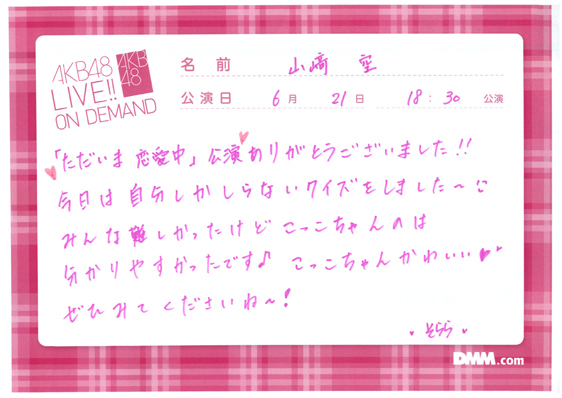 AKB48
LIVE!!
ON DEMAND
AKB
48
名前 山﨑 空
公演日 6月 21日 18:30 公演
「ただいま 恋愛中」公演ありがとうございました!!
今日は自分しかしらないクイズをしました〜
みんな難しかったけど こっこちゃんのは
分かりやすかったです♪ こっこちゃんかわいい
ぜひみてくださいね〜!
そらら
DMM.com